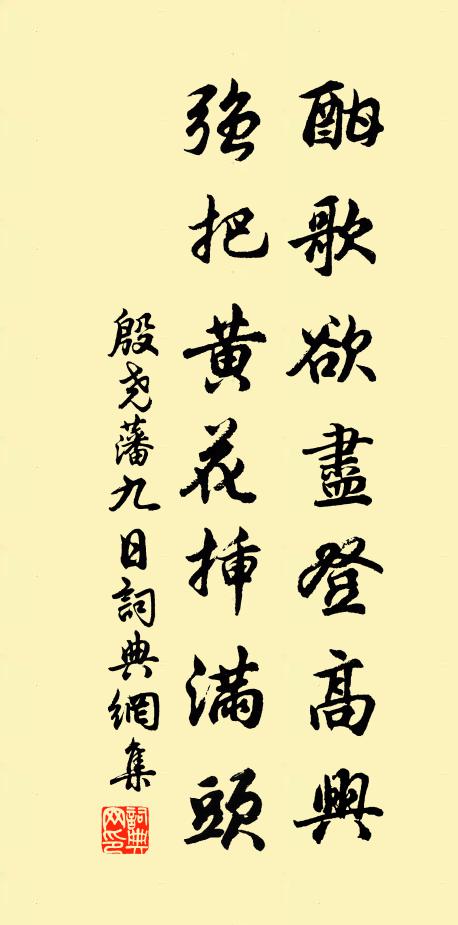 酣歌欲盡登高興
強把黃花插滿頭
殷堯藩九日詞典網集
詞典網印